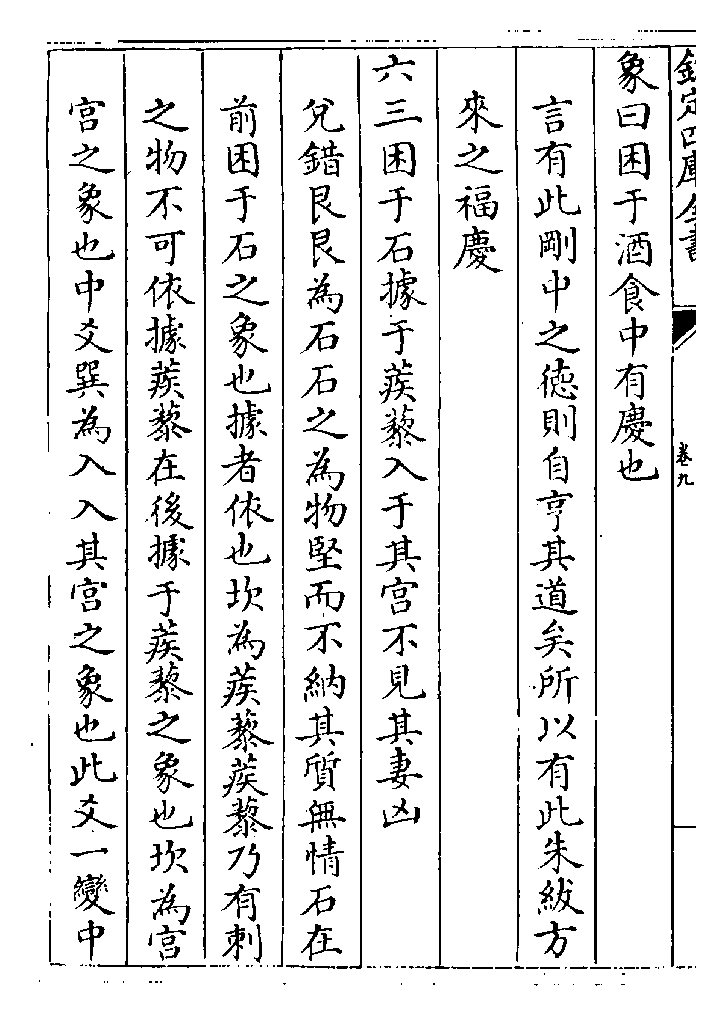 欽定四庫全書
卷九
象曰困于酒食中有慶也
言有此剛中之德則自亨其道矣所以有此朱紱方
來之福慶
六三困于石據于蒺藜入于其宮不見其妻凶
兌錯艮艮為石石之為物堅而不納其質無情石在
前困于石之象也據者依也坎為蒺藜蒺藜乃有刺
之物不可依據蒺藜在後據于蒺藜之象也坎為宮
宮之象也中爻巽為入入其宮之象也此爻一變中